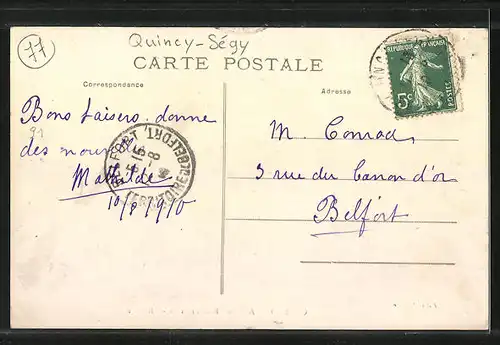 77
Quincy-Ségy
CARTE POSTALE
Correspondance
Adresse
RÉPUBLIQUE FRANÇAISE
5c
POSTES
Bons baisers. donne
des nouvelles
Mathilde
10/8/1910
BELFORT
5-15
8
TERRRE DE BELFORT
M. Conrad
3 rue du Canon d'or
Belfort